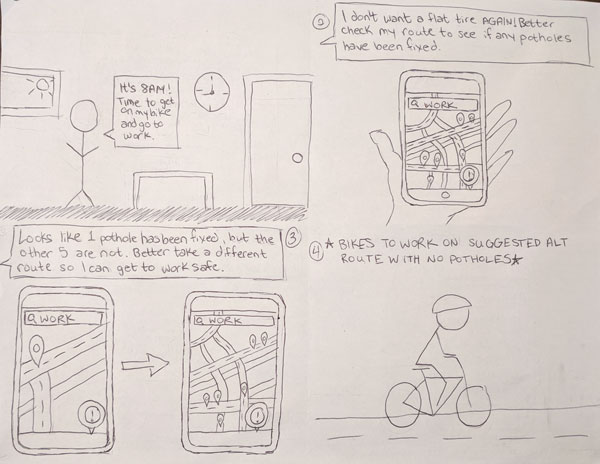 It's 8AM!
Time to get
on my bike
and go to
work.
2
I don't want a flat tire AGAIN! Better
check my route to see if any potholes
have been fixed.
WORK
!
3
Looks like 1 pothole has been fixed, but the
other 5 are not. Better take a different
route so I can get to work safe.
WORK
!
WORK
!
4
★ BIKES TO WORK ON SUGGESTED ALT
ROUTE WITH NO POTHOLES ★